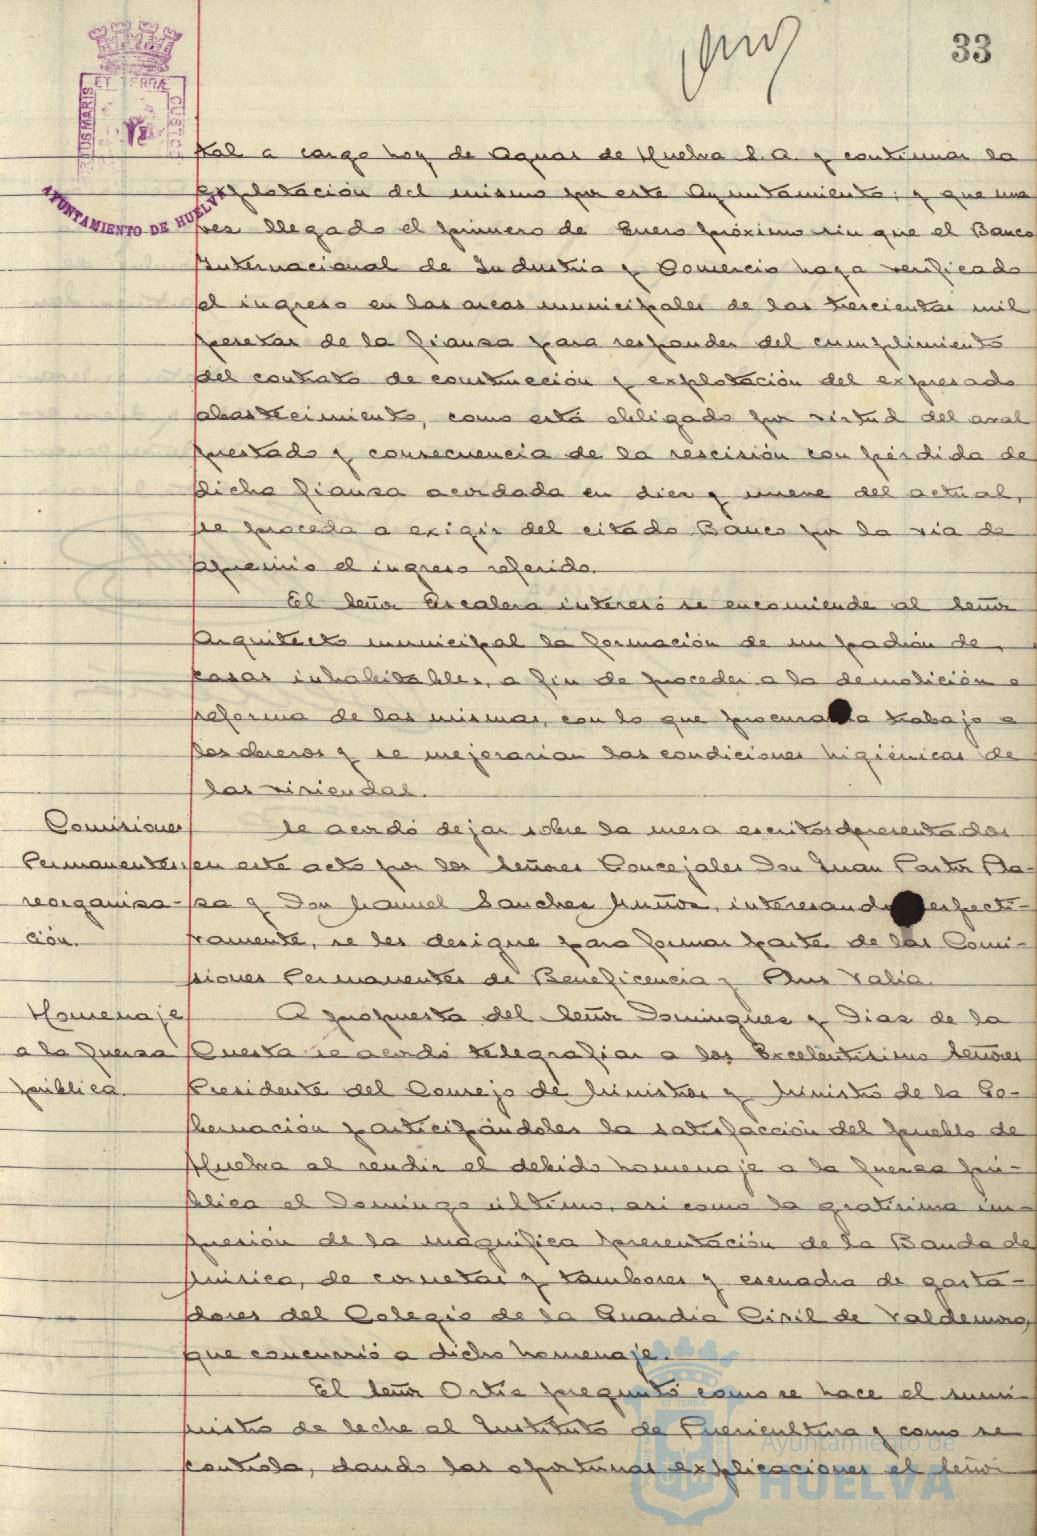 33
PORTUS MARIS ET TERRÆ CUSTODIA
AYUNTAMIENTO DE HUELVA
tal a cargo hoy de Aguas de Huelva S.A. y continuar la
explotación del mismo por este Ayuntamiento; y que una
vez llegado el primero de Enero próximo sin que el Banco
Internacional de Industria y Comercio haya verificado
el ingreso en las arcas municipales de las trescientas mil
pesetas de la fianza para responder del cumplimiento
del contrato de construcción y explotación del expresado
abastecimiento, como está obligado por virtud del aval
prestado y consecuencia de la rescisión con pérdida de
dicha fianza acordada en diez y nueve del actual,
se proceda a exigir del citado Banco por la via de
apremio el ingreso referido.
El Señor Escalera interesó se encomiende al Señor
Arquitecto municipal la formación de un padrón de
casas inhabitables, a fin de proceder a la demolición o
reforma de las mismas, con lo que procura a trabajo a
los obreros y se mejorarian las condiciones higiénicas de
las viviendas.
Comisiones
Permanentes:
reorganiza-
ción.
Se acordó dejar sobre la mesa escritos presentados
en este acto por los Señores Concejales Don Juan Pastor Pla-
za y Don Manuel Sanchez Muñoz, interesando
tivamente, se les designe para formar parte de las Comi-
siones Permanentes de Beneficencia y Plus Valia.
Homenaje
a la fuerza
pública.
A propuesta del Señor Dominguez y Diaz de la
Cuesta se acordó telegrafiar a los Excelentisimo Señores
Presidente del Consejo de Ministros y Ministro de la Go-
bernación participándoles la satisfacción del pueblo de
Huelva al rendir el debido homenaje a la fuerza pú-
blica el Domingo último, asi como la gratisima im-
presión de la magnifica presentación de la Banda de
Musica, de cornetas y tambores y escuadra de gasta-
dores del Colegio de la Guardia Civil de Valdemoro,
que concurrió a dicho homenaje.
El Señor Ortiz preguntó como se hace el sumi-
nistro de leche al Instituto de Puericultura y como se
controla, dando las oportunas explicaciones el Señor
Ayuntamiento de
HUELVA